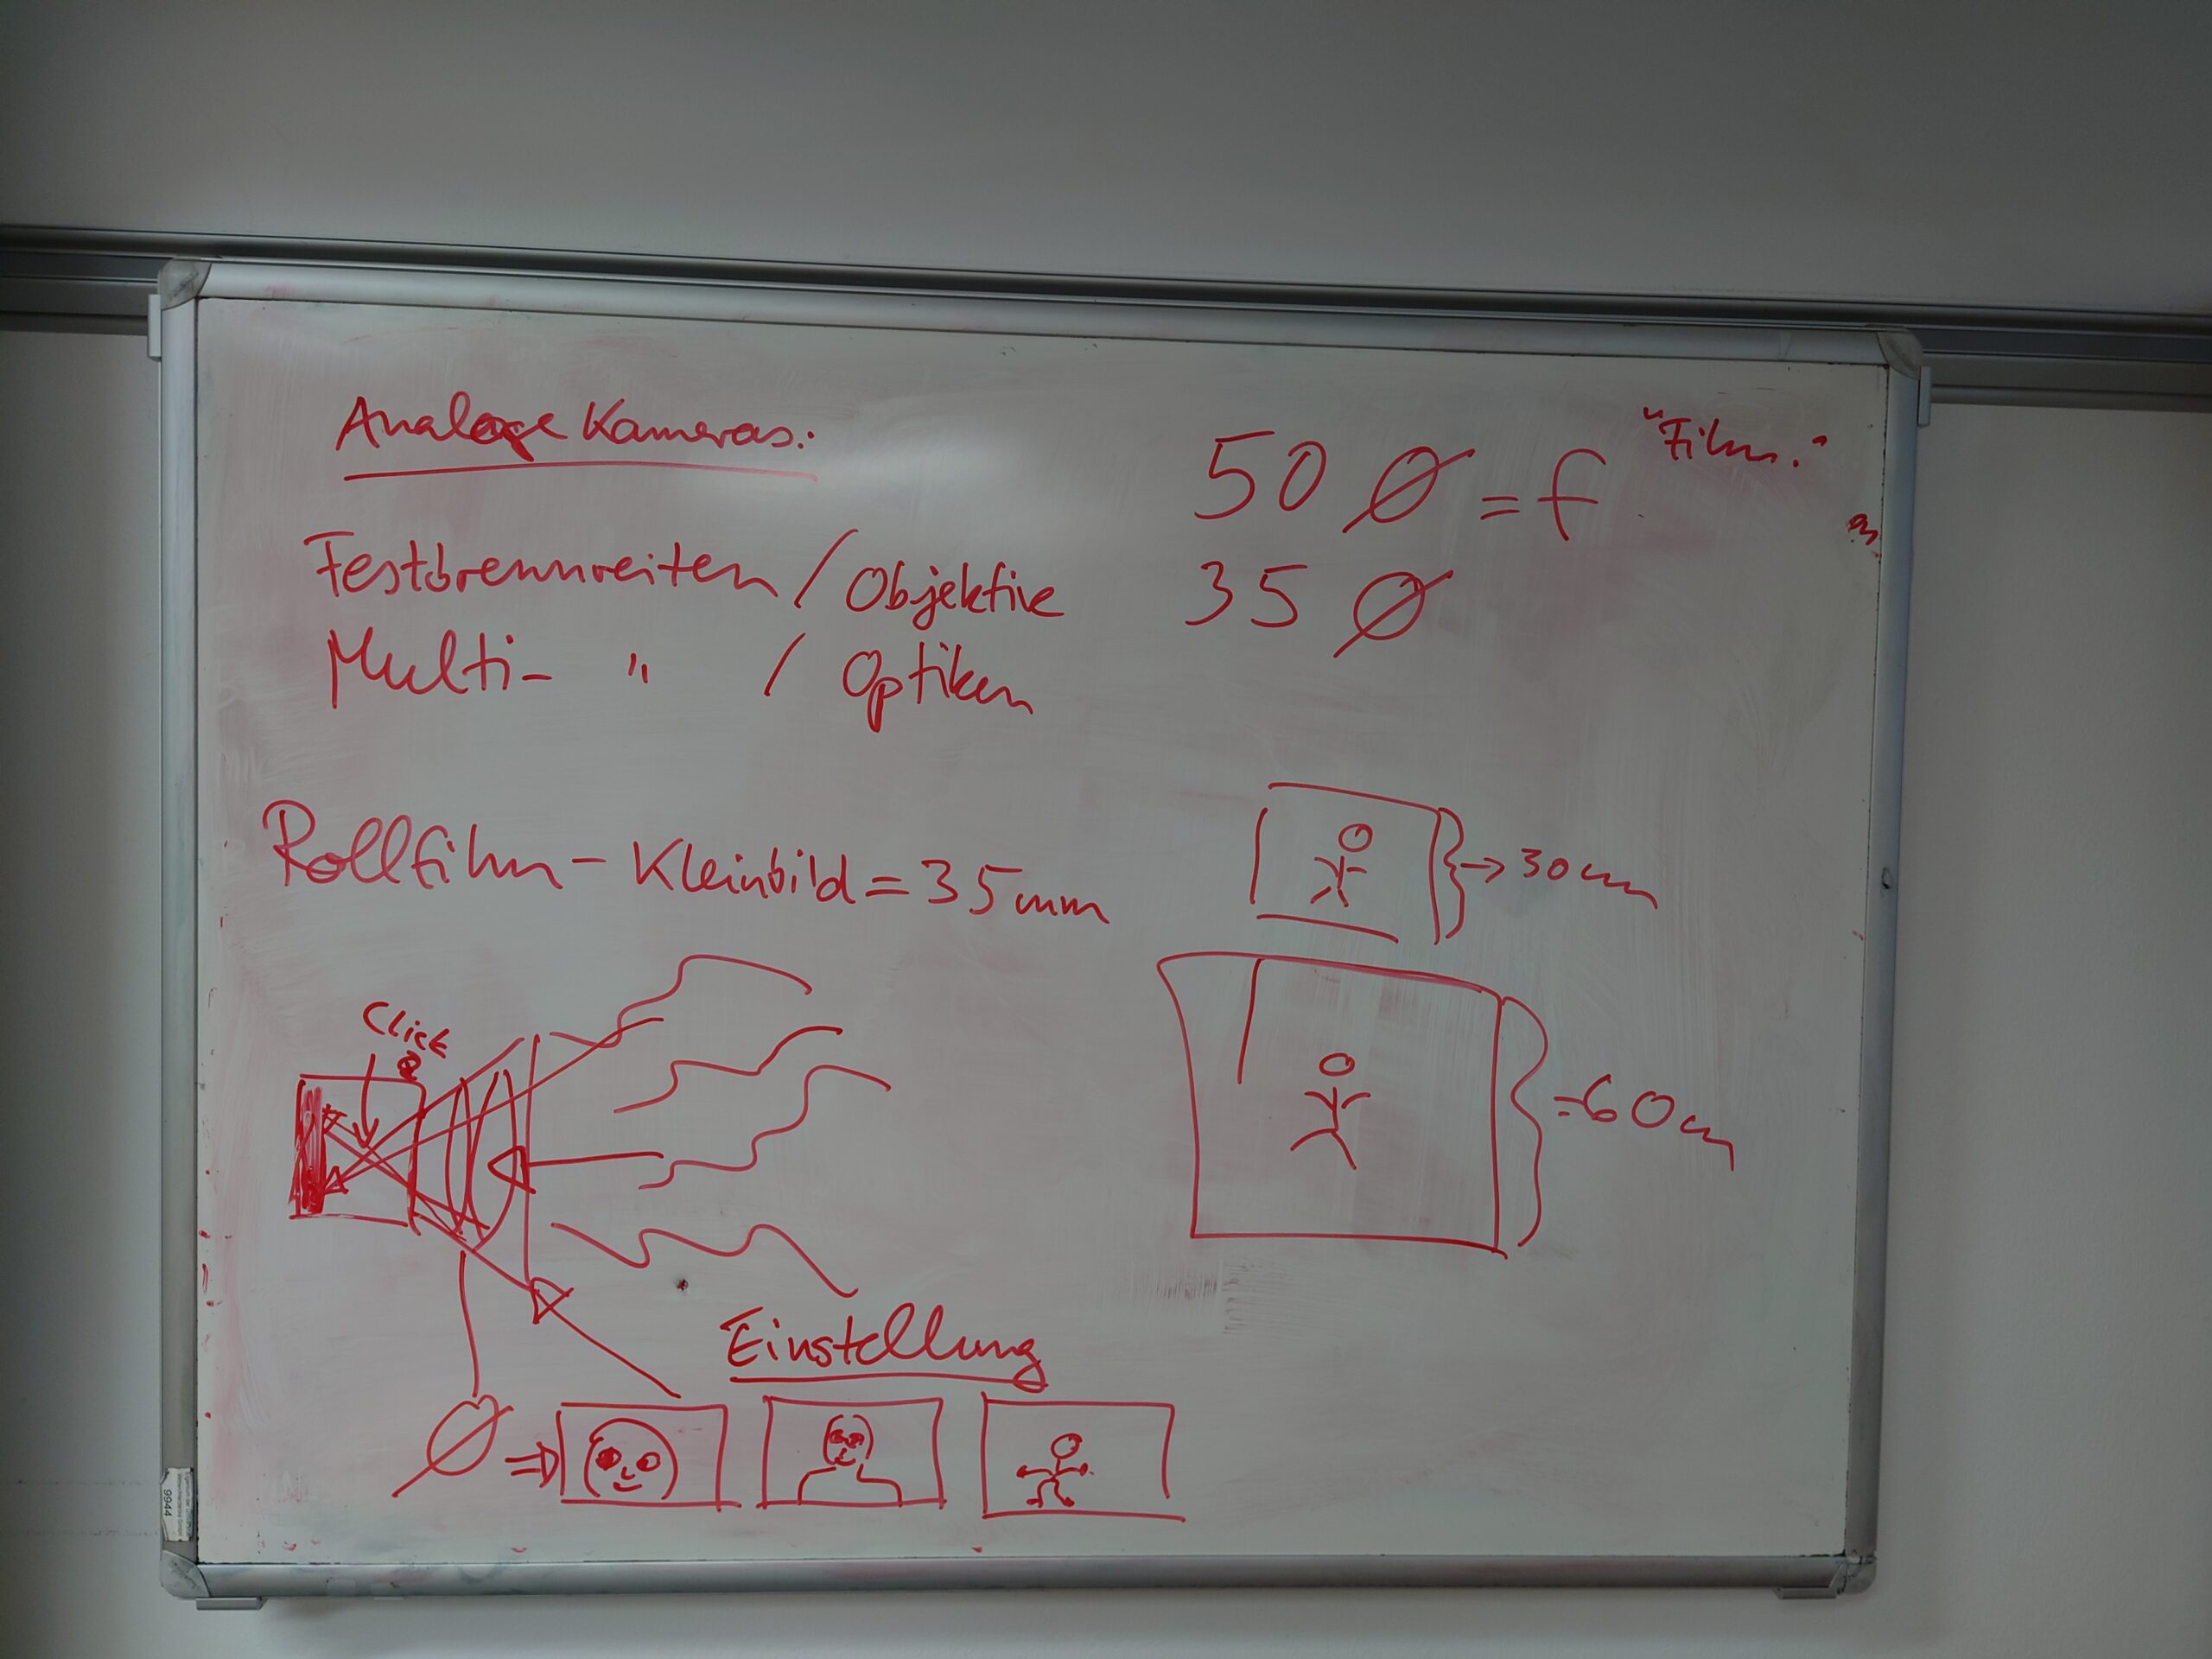 Analoge Kameras:
50 Ø = f
"Film."
Festbrennweiten / Objektive
35 Ø
Multi- " / Optiken
Rollfilm - Kleinbild = 35mm
→ 30cm
Click
= 60cm
Einstellung
Ø ⇒
9944